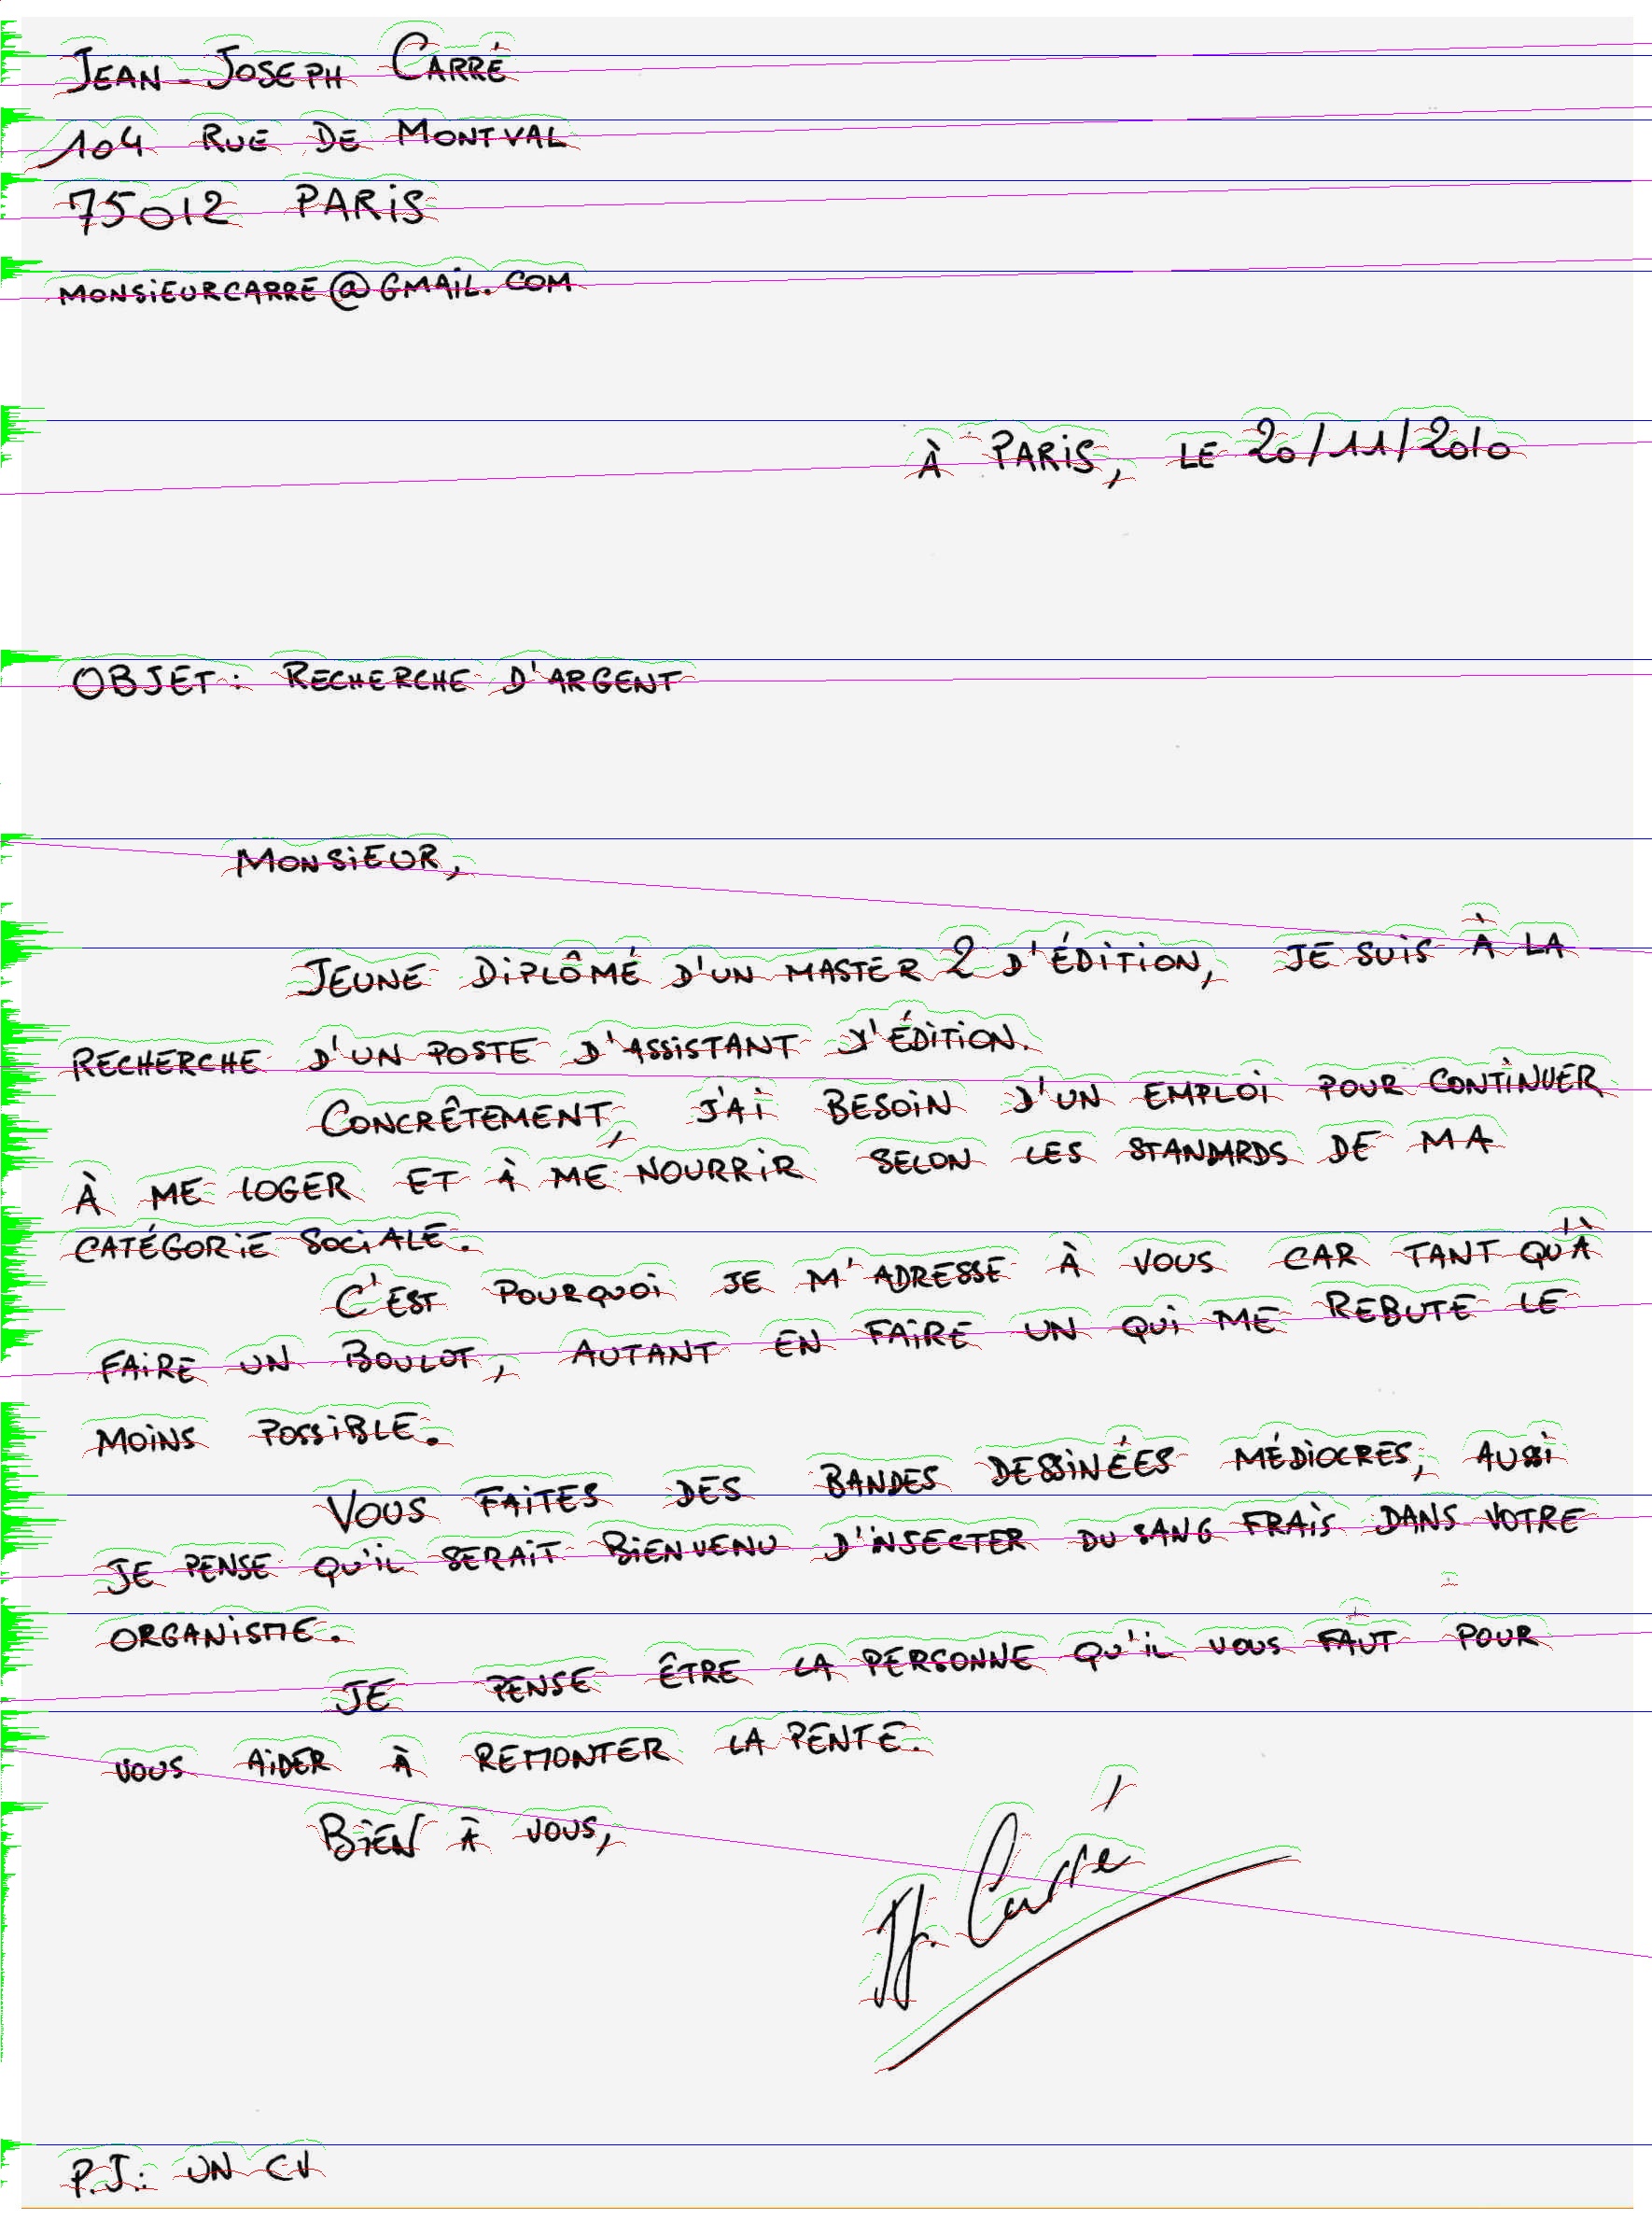 JEAN-JOSEPH CARRÉ
104 RUE DE MONTVAL
75012 PARiS
MONSiEURCARRE@GMAiL.COM
À PARiS, LE 20/11/2010
OBJET: RECHERCHE D'ARGENT
MONSiEUR,
JEUNE DiPLÔMÉ D'UN MASTER 2 D'ÉDiTiON, JE SUiS À LA
RECHERCHE D'UN POSTE D'ASSiSTANT D'ÉDiTiON.
CONCRÊTEMENT, J'Ai BESOiN D'UN EMPLOi POUR CONTiNUER
À ME LOGER ET À ME NOURRiR SELON LES STANDARDS DE MA
CATÉGORiE SOCiALE.
C'EST POURQUOi JE M'ADRESSE À VOUS CAR TANT QU'À
FAiRE UN BOULOT, AUTANT EN FAiRE UN QUi ME REBUTE LE
MOiNS POSSiBLE.
VOUS FAiTES DES BANDES DESSiNÉES MÉDiOCRES, AUSSi
JE PENSE QU'iL SERAiT BiENVENU D'iNJECTER DU SANG FRAiS DANS VOTRE
ORGANiSME.
JE PENSE ÊTRE LA PERSONNE QU'iL VOUS FAUT POUR
VOUS AiDER À REMONTER LA PENTE.
BiEN À VOUS,
JJ. Carré
P.J.: UN CV